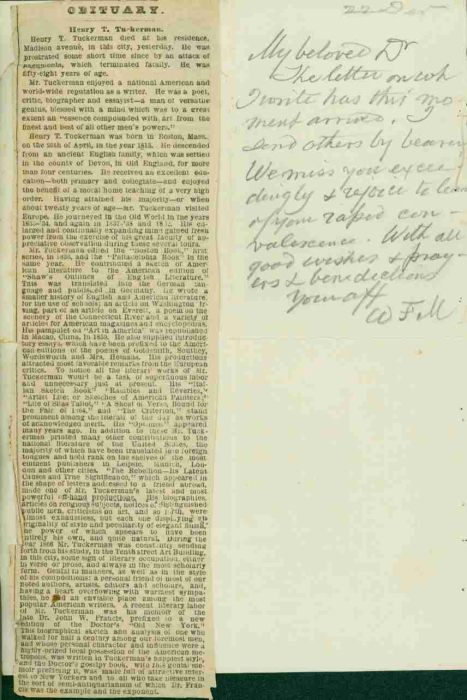 OBITUARY.
Henry T. Tuckerman.
Henry T. Tuckerman died at his residence,
Madison avenue, in this city, yesterday. He was
prostrated some short time since by an attack of
pneumonia, which terminated fatally. He was
fifty-eight years of age.
Mr. Tuckerman enjoyed a national American and
world-wide reputation as a writer. He was a poet,
critic, biographer and essayist—a man of versatile
genius, blessed with a mind which was to a great
extent an "essence compounded with art from the
finest and best of all other men's powers."
Henry T. Tuckerman was born in Boston, Mass.
on the 20th of April, in the year 1813. He descended
from an ancient English family, which was settled
in the county of Devon, in Old England, for more
than four centuries. He received an excellent edu-
cation—both primary and collegiate—and enjoyed
the benefit of a moral home teaching of a very high
order. Having attained his majority—or when
about twenty years of age—Mr. Tuckerman visited
Europe. He journeyed in the Old World in the years
1833-'34, and again in 1837-'38 and 1852. His en-
larged and continually expanding mind gained fresh
power from the exercise of his great faculty of ap-
preciative observation during these several tours.
Mr. Tuckerman edited the "Boston Book," first
series, in 1836, and the "Philadelphia Book" in the
same year. He contributed a sketch of Amer-
ican literature to the American edition of
"Shaw's Outlines of English Literature."
This was translated into the German lan-
guage and published in Germany. He wrote a
smaller history of English and American literature,
for the use of schools; an article on Washington Ir-
ving, part of an article on Everett, a poem on the
scenery of the Connecticut River and a variety of
articles for American magazines and encyclopedias.
His pamphlet on "Art in America" was republished
in Macao, China, in 1839. He also supplied introduc-
tory essays, which have been prefixed to the Ameri-
can editions of the poems of Goldsmith, Southey,
Wordsworth and Mrs. Hemans. His productions
attracted most favorable remarks from the European
critics. To notice all the literary works of Mr.
Tuckerman would be a task of superfluous labor
and unnecessary just at present. His "Ital-
ian Sketch Book," "Rambles and Reveries,"
"Artist Life; or Sketches of American Painters;"
"Life of Silas Talbot," "A Sheaf of Verse, Bound for
the Fair of 1864," and "The Criterion," stand
prominent among the literati of the day as works
of acknowledged merit. His "Optimist" appeared
many years ago. In addition to these Mr. Tuck-
erman printed many other contributions to the
national literature of the United States, the
majority of which have been translated into foreign
tongues and hold rank on the shelves of the most
eminent publishers in Leipsic, Munich, Lon-
don and other cities. "The Rebellion—Its Latent
Causes and True Significance," which appeared in
the shape of letters addressed to a friend abroad,
made one of Mr. Tuckerman's latest and most
powerful off-hand productions. His biographies,
articles on religious subjects, notices of distinguished
public men, criticisms on art, and so forth, were
almost exhaustless, but each one displaying an
originality of style and peculiarity of elegant finish,
the power of which appears to have been
entirely his own, and quite natural. During the
year 1866 Mr. Tuckerman was constantly sending
forth from his study, in the Tenth street Art Building,
in this city, some sign of literary occupation, either
in verse or prose, and always in the most scholarly
form. Genial in manners, as well as in the style
of his compositions; a personal friend of most of our
noted authors, artists, editors and scholars, and,
having a heart overflowing with warmest sympa-
thies, he had an enviable place among the most
popular American writers. A recent literary labor
of Mr. Tuckerman was his memoir of the
late Dr. John W. Francis, prefixed to a new
edition of the Doctor's "Old New York."
This biographical sketch and analysis of one who
walked for half a century among our foremost men,
and whose personal character and influence were a
highly-prized local possession of the American me-
tropolis, was written in Tuckerman's happiest style,
and the Doctor's gossipy book, with this genial me-
moir prefacing it, was made full of attractive inter-
est to New Yorkers and to all who take pleasure in
the sort of semi-antiquarianism of which Dr. Fran-
cis was the example and the exponent.
22 Dec
My beloved Dr
The letter on wh
I write has this mo
ment arrived. I
send others by bearer
We miss you excee
dingly & rejoice to learn
of your rapid con-
valescence. With all
good wishes & pray-
ers & benedictions
Your aff
W F M